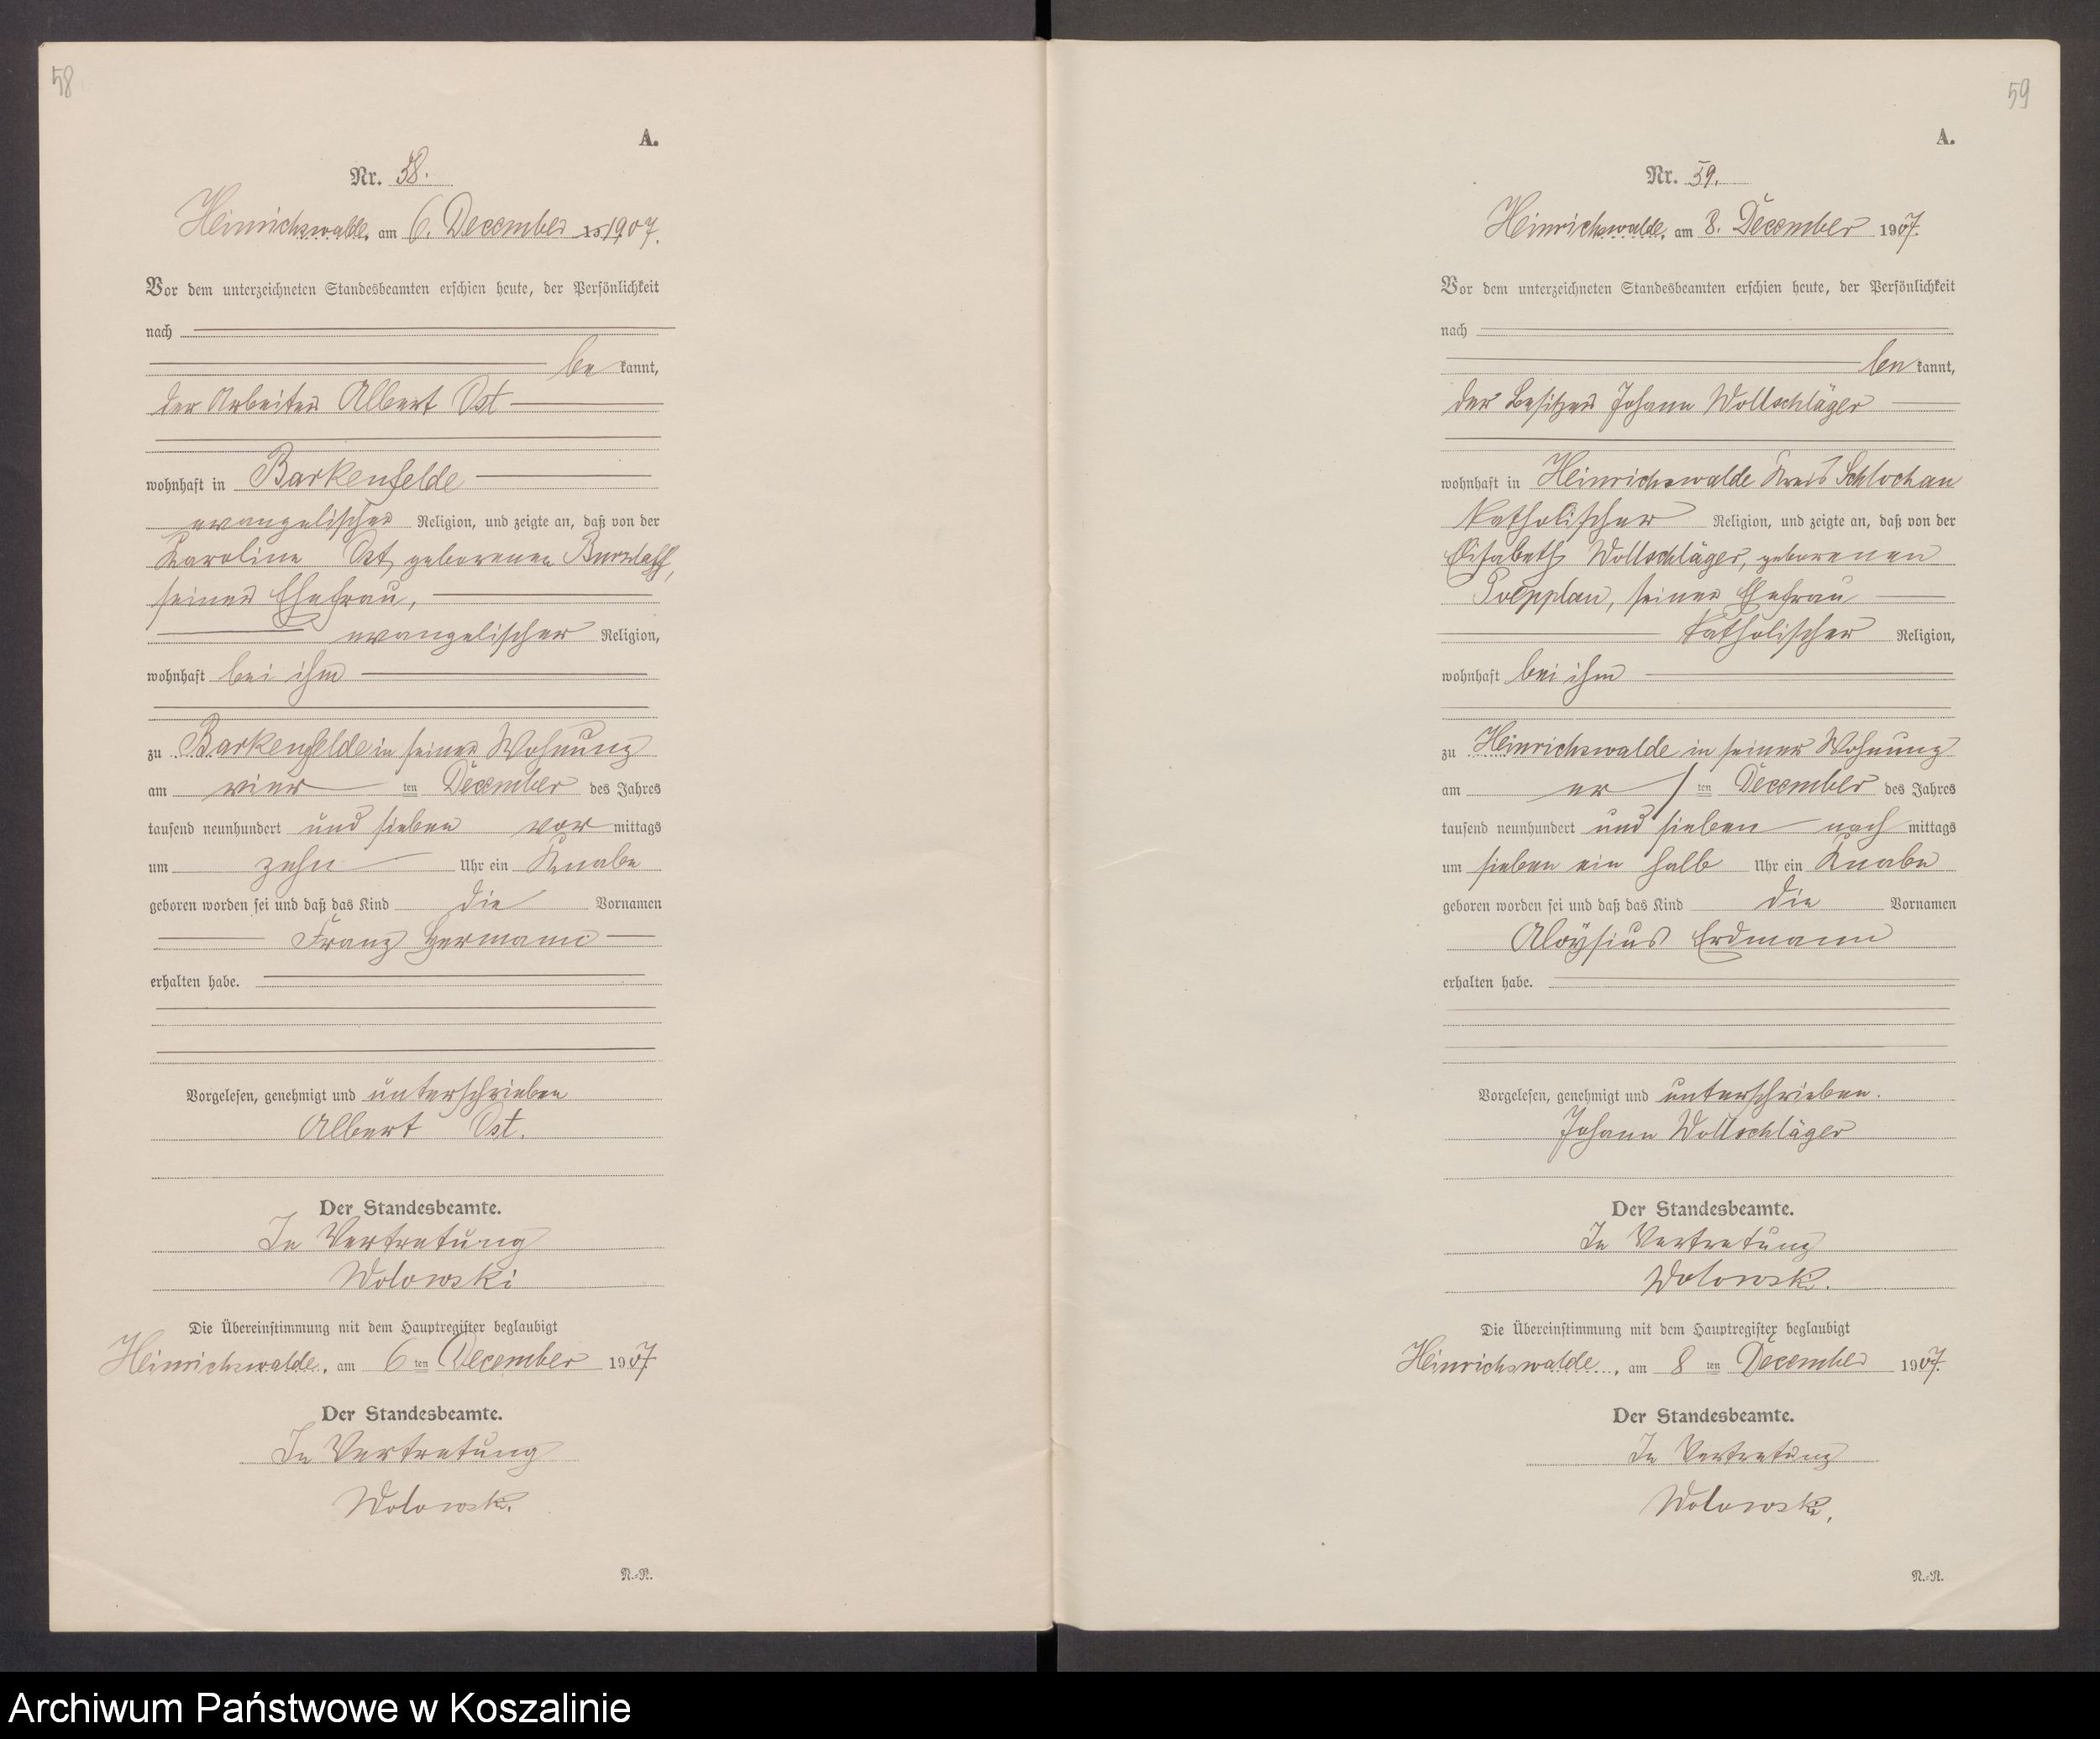 58
A.
Nr. 58.
Heinrichswalde, am 6. December 1907.
Vor dem unterzeichneten Standesbeamten erschien heute, der Persönlichkeit
nach
be kannt,
der Arbeiter Albert Ost
wohnhaft in Barkenfelde
evangelischer Religion, und zeigte an, daß von der
Karoline Ost, geborenen
seiner Ehefrau,
evangelischer Religion,
wohnhaft bei ihm
zu Barkenfelde in seiner Wohnung
am vier ten December des Jahres
tausend neunhundert und sieben vor mittags
um zehn Uhr ein Knabe
geboren worden sei und daß das Kind die Vornamen
Franz Hermann
erhalten habe.
Vorgelesen, genehmigt und unterschrieben
Albert Ost.
Der Standesbeamte.
In Vertretung
Wolowski
Die Übereinstimmung mit dem Hauptregister beglaubigt
Heinrichswalde, am 6 ten December 1907.
Der Standesbeamte.
In Vertretung
Wolowski.
N.-N.
59
A.
Nr. 59.
Heinrichswalde, am 8. December 1907.
Vor dem unterzeichneten Standesbeamten erschien heute, der Persönlichkeit
nach
be kannt,
der Besitzer Johann Wollschläger
wohnhaft in Heinrichswalde Kreis Schlochau
katholischer Religion, und zeigte an, daß von der
Elisabeth Wollschläger, geborenen
Poepplau, seiner Ehefrau
katholischer Religion,
wohnhaft bei ihm
zu Heinrichswalde in seiner Wohnung
am er / ten December des Jahres
tausend neunhundert und sieben nach mittags
um sieben ein halb Uhr ein Knabe
geboren worden sei und daß das Kind die Vornamen
Aloysius Erdmann
erhalten habe.
Vorgelesen, genehmigt und unterschrieben.
Johann Wollschläger
Der Standesbeamte.
In Vertretung
Wolowski.
Die Übereinstimmung mit dem Hauptregister beglaubigt
Heinrichswalde, am 8 ten December 1907.
Der Standesbeamte.
In Vertretung
Wolowski.
N.-N.
Archiwum Państwowe w Koszalinie